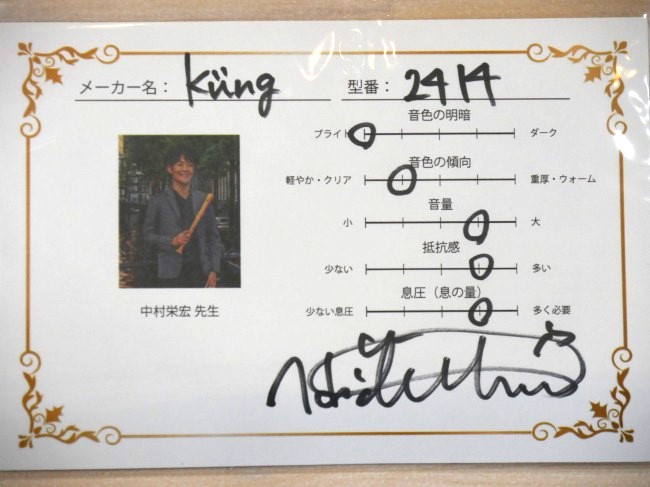 メーカー名： Küng 型番： 2414
音色の明暗
ブライト ダーク
音色の傾向
軽やか・クリア 重厚・ウォーム
音量
小 大
抵抗感
少ない 多い
息圧（息の量）
少ない息圧 多く必要
中村栄宏 先生